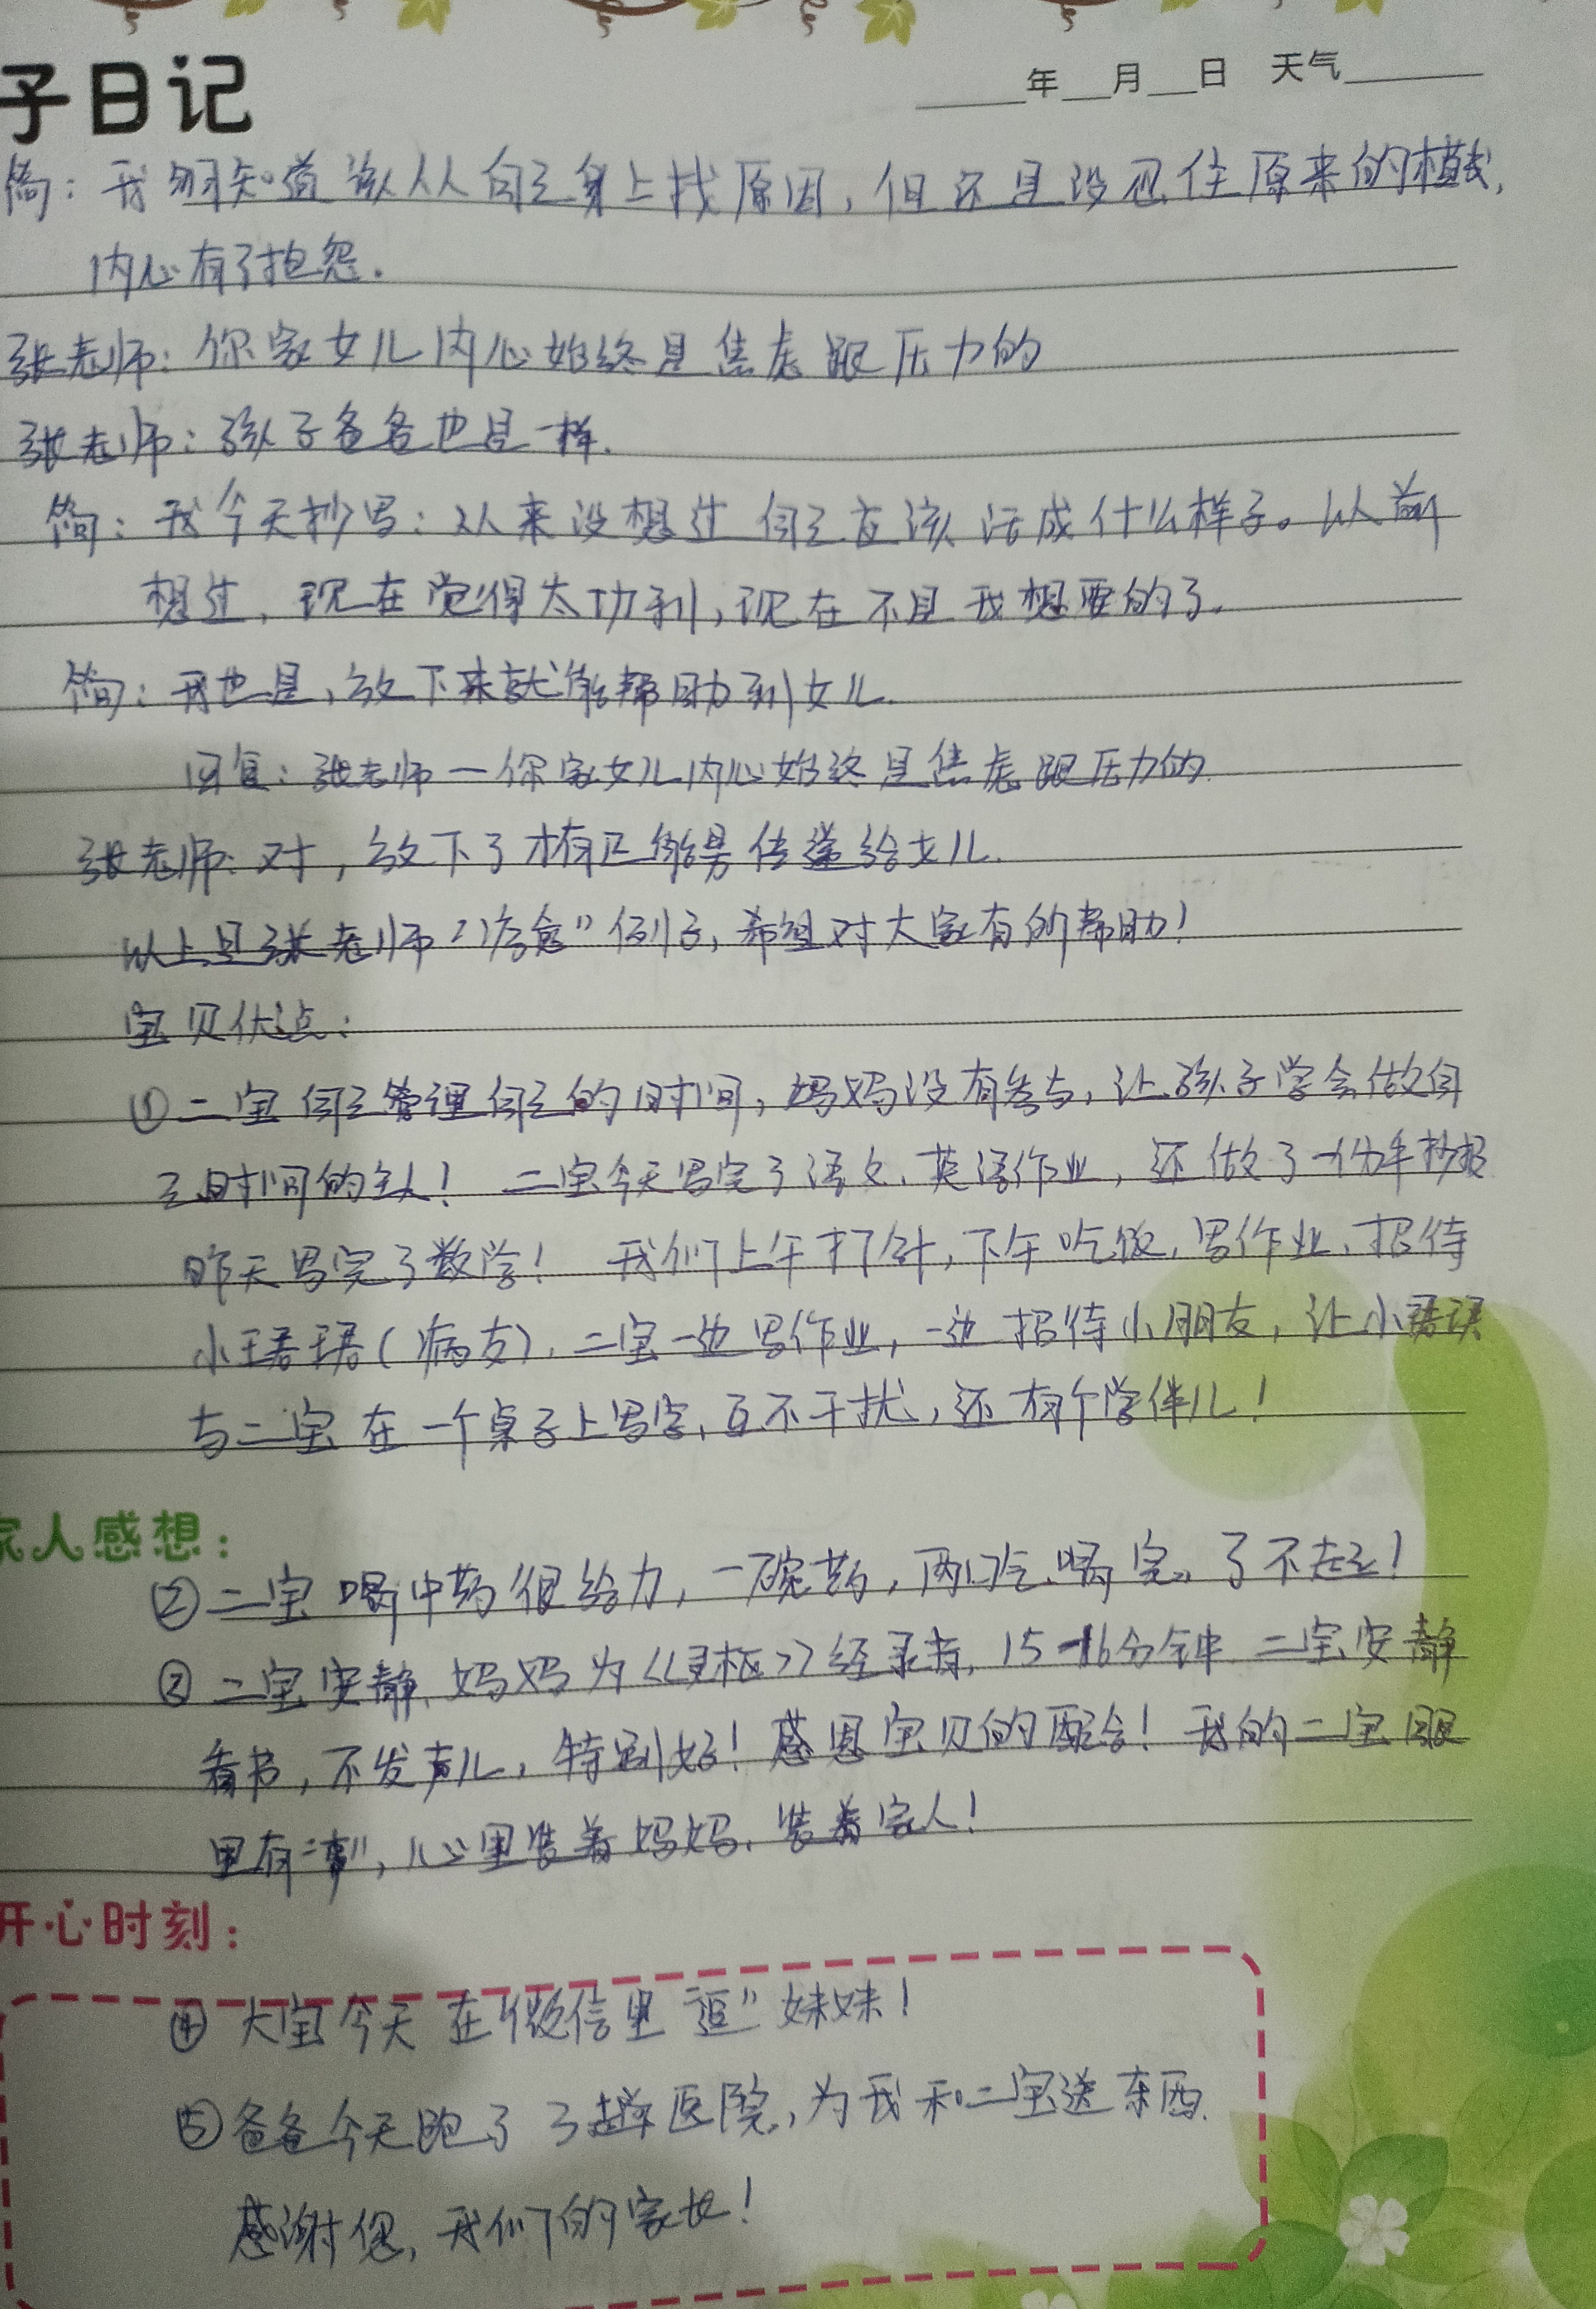 子日记
年 月 日 天气
简：我明知道该从自己身上找原因，但还是没忍住原来的模式，
内心有了抱怨。
张老师：你家女儿内心始终是焦虑跟压力的
张老师：孩子爸爸也是一样.
简：我今天抄写：从来没想过自己应该活成什么样子。以前
想过，现在觉得太功利，现在不是我想要的了。
简：我也是，放下来就能帮助到女儿.
回复：张老师—你家女儿内心始终是焦虑跟压力的.
张老师：对，放下了才有正能量传递给女儿.
以上是张老师“疗愈”例子，希望对大家有所帮助！
宝贝优点：
①二宝自己管理自己的时间，妈妈没有参与，让孩子学会做自
己时间的主人！ 二宝今天写完了语文、英语作业，还做了一份手抄报
昨天写完了数学！ 我们上午打针，下午吃饭、写作业、招待
小珺珺（病友），二宝一边写作业，一边招待小朋友，让小珺珺
与二宝在一个桌子上写字，互不干扰，还有个学伴儿！
家人感想：
②二宝喝中药很给力，一碗药，两口气喝完。了不起！
③二宝安静，妈妈为《灵枢》经录音，15-16分钟 二宝安静
看书，不发声儿，特别好！感恩宝贝的配合！我的二宝眼
里有“事”，心里装着妈妈、装着家人！
开心时刻：
④ 大宝今天在微信里“逗”妹妹！
⑤爸爸今天跑了3趟医院，为我和二宝送东西.
感谢您，我们的家长！